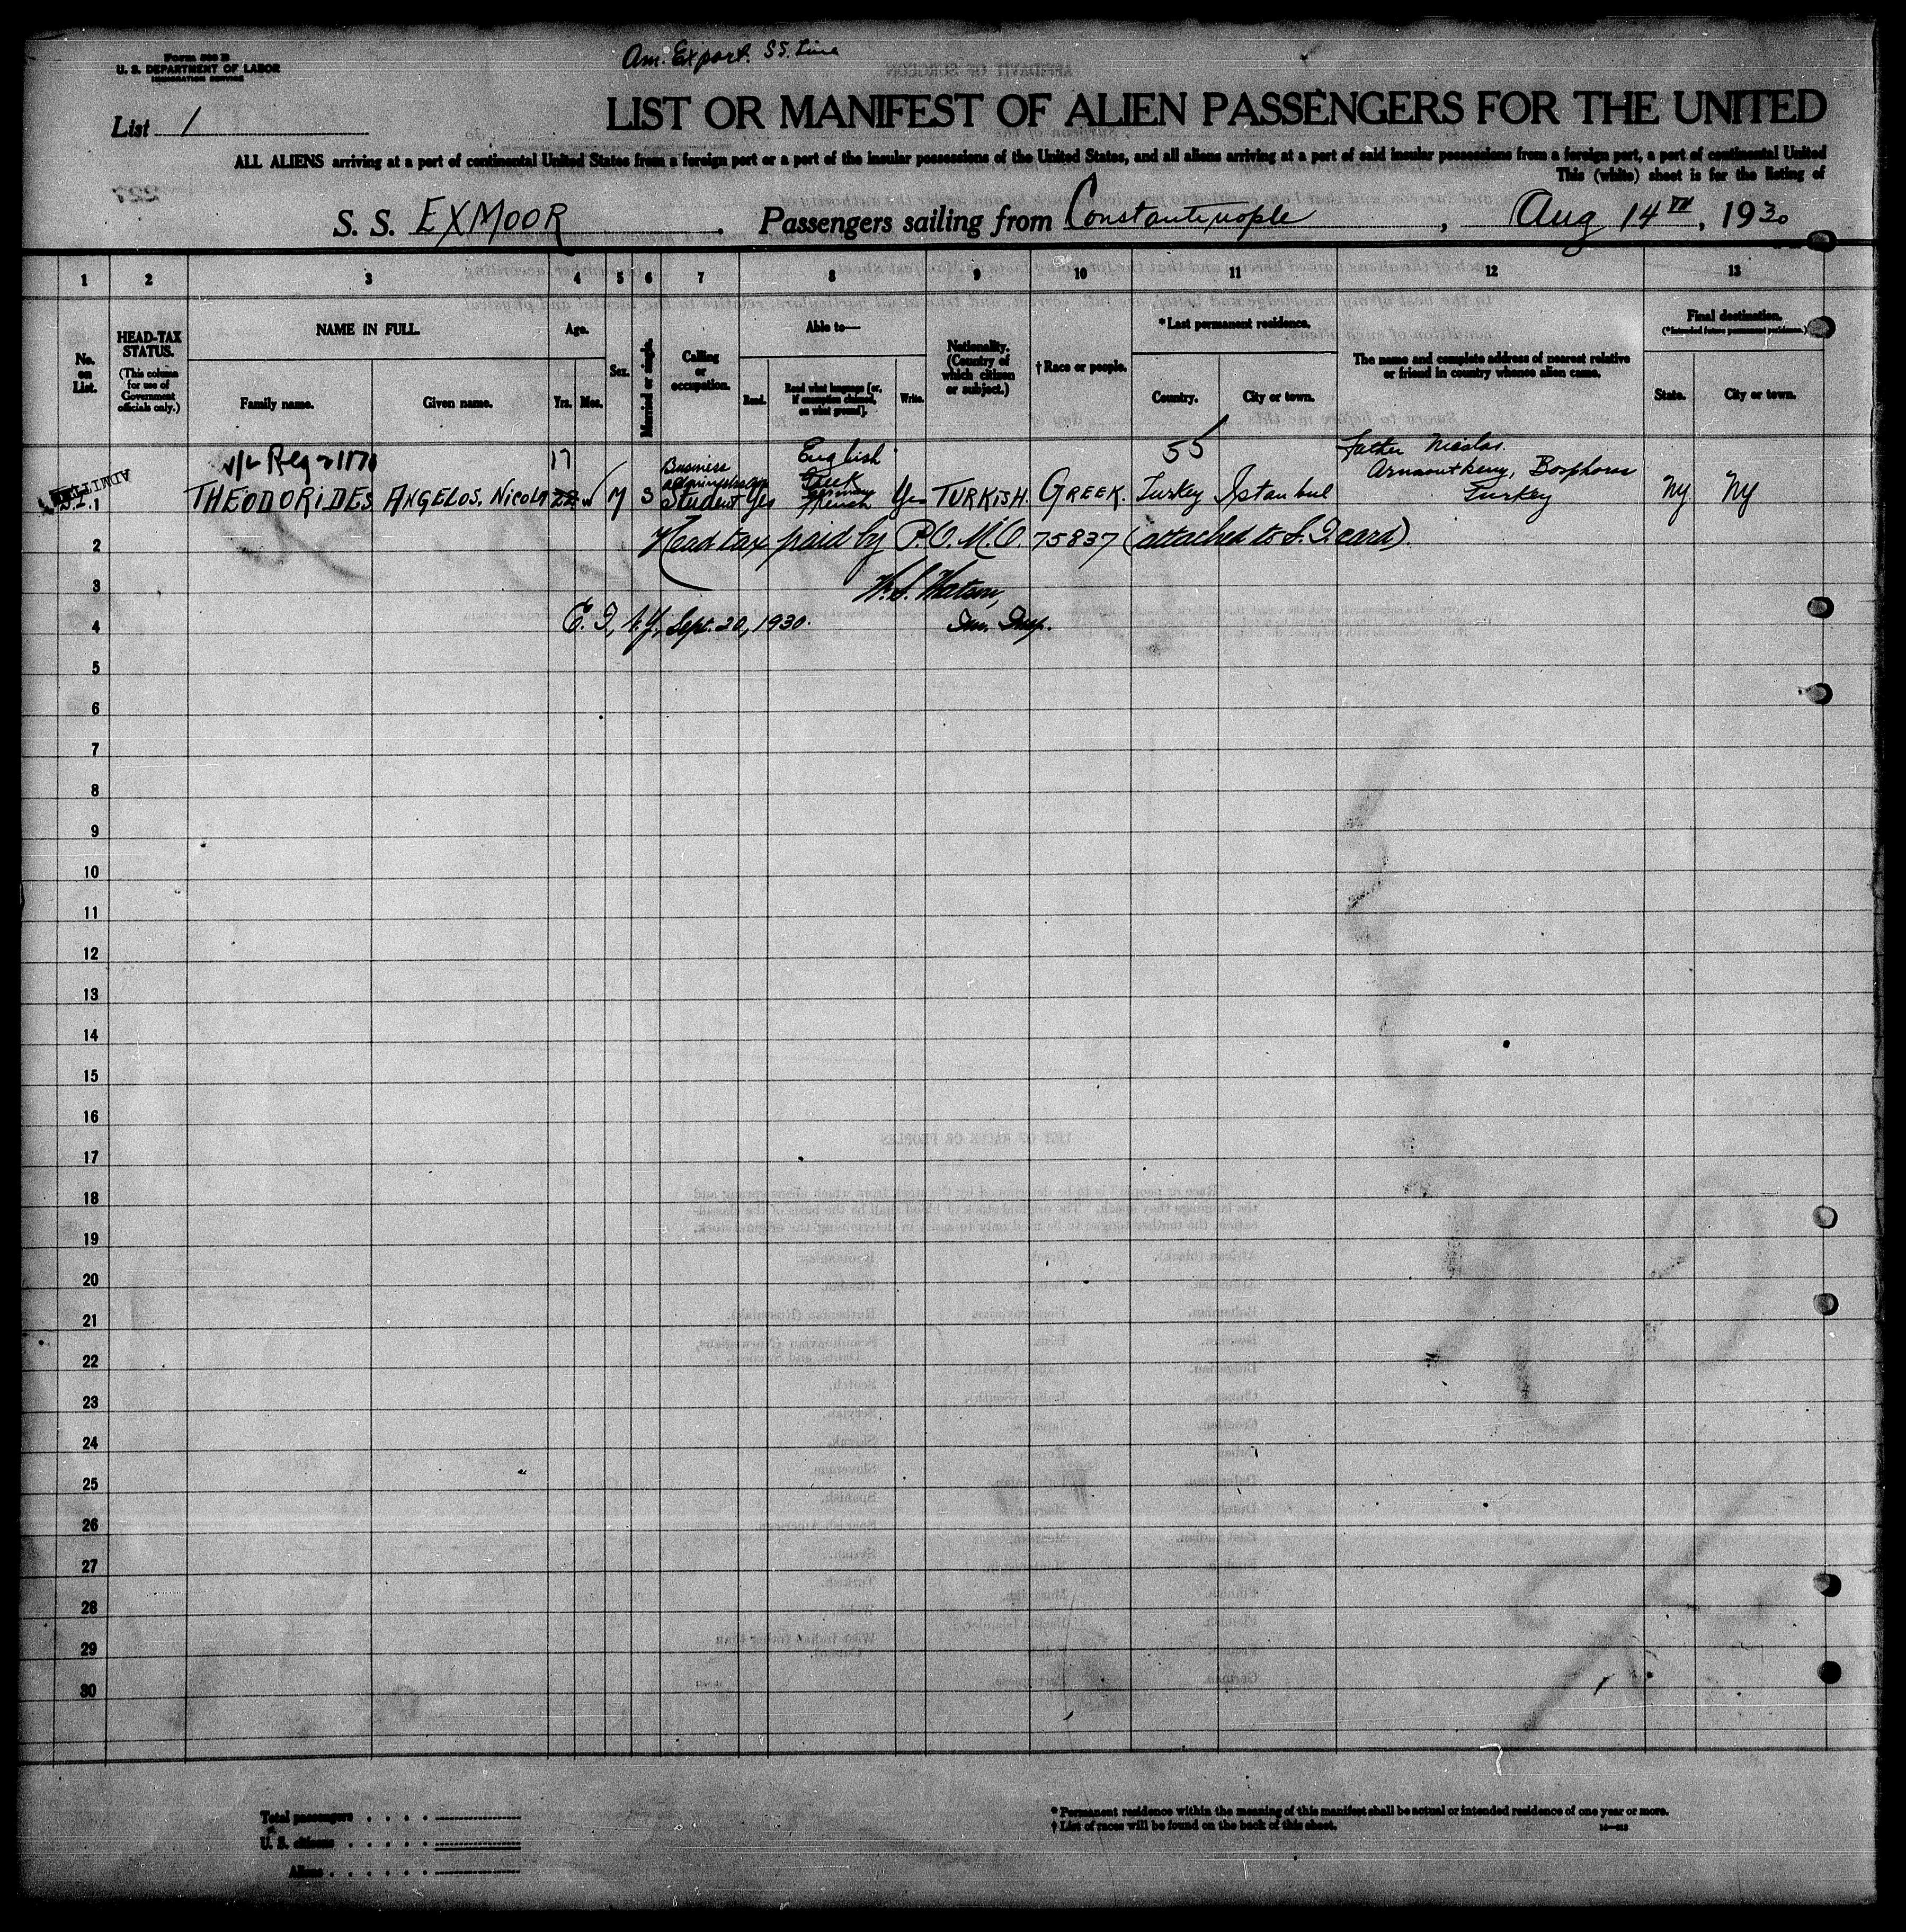 Form 500 B
U. S. DEPARTMENT OF LABOR
IMMIGRATION SERVICE
Am. Export. SS. Line
List 1
LIST OR MANIFEST OF ALIEN PASSENGERS FOR THE UNITED
ALL ALIENS arriving at a port of continental United States from a foreign port or a port of the insular possessions of the United States, and all aliens arriving at a port of said insular possessions from a foreign port, a port of continental United
This (white) sheet is for the listing of
S. S. EXMOOR Passengers sailing from Constantinople, Aug 14th, 1930
1 2 3 4 5 6 7 8 9 10 11 12 13
No. on List.
HEAD-TAX STATUS.
(This column for use of Government officials only.)
NAME IN FULL.
Family name. Given name.
Age.
Yrs. Mos.
Sex.
Married or single.
Calling or occupation.
Able to—
Read. Read what language [or, if exemption claimed, on what ground]. Write.
Nationality. (Country of which citizen or subject.)
† Race or people.
* Last permanent residence.
Country. City or town.
The name and complete address of nearest relative or friend in country whence alien came.
Final destination.
(* Intended future permanent residence.)
State. City or town.
17 English 55 Father Nicolas.
ADMITTED
Business Greek Arnaoutkeuy, Bosphorus
1 THEODORIDES ANGELOS. Nicola 22 M S Student Yes German French Yes TURKISH. GREEK. Turkey Istanbul Turkey NY NY
2 Head tax paid by P.O. M.O. 75837 (attached to S. I. card)
3 W. S. Watson,
4 E. I., N.Y., Sept. 20, 1930. Im. Insp.
5
6
7
8
9
10
11
12
13
14
15
16
17
18
19
20
21
22
23
24
25
26
27
28
29
30
Total passengers
U. S. citizens
Aliens
* Permanent residence within the meaning of this manifest shall be actual or intended residence of one year or more.
† List of races will be found on the back of this sheet.